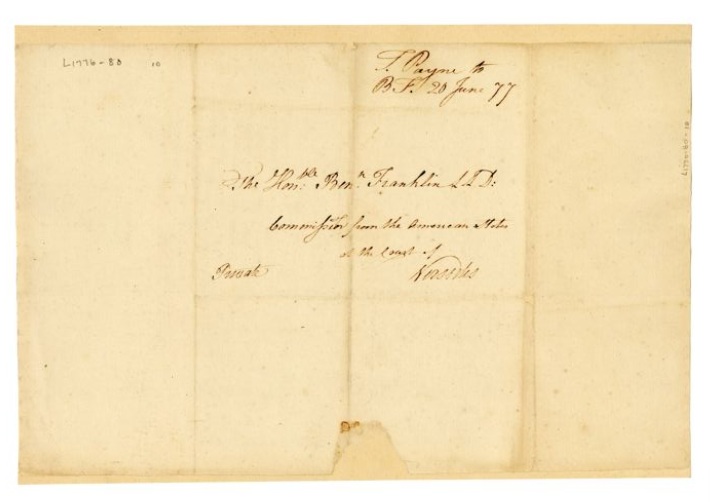 L1776-80 10
T. Payne to
B.F. 20 June 77
The Hon:ble Benn. Franklin LLD:
Commissr from the American States
at the Court of
Private Versailes
L1776-80-10